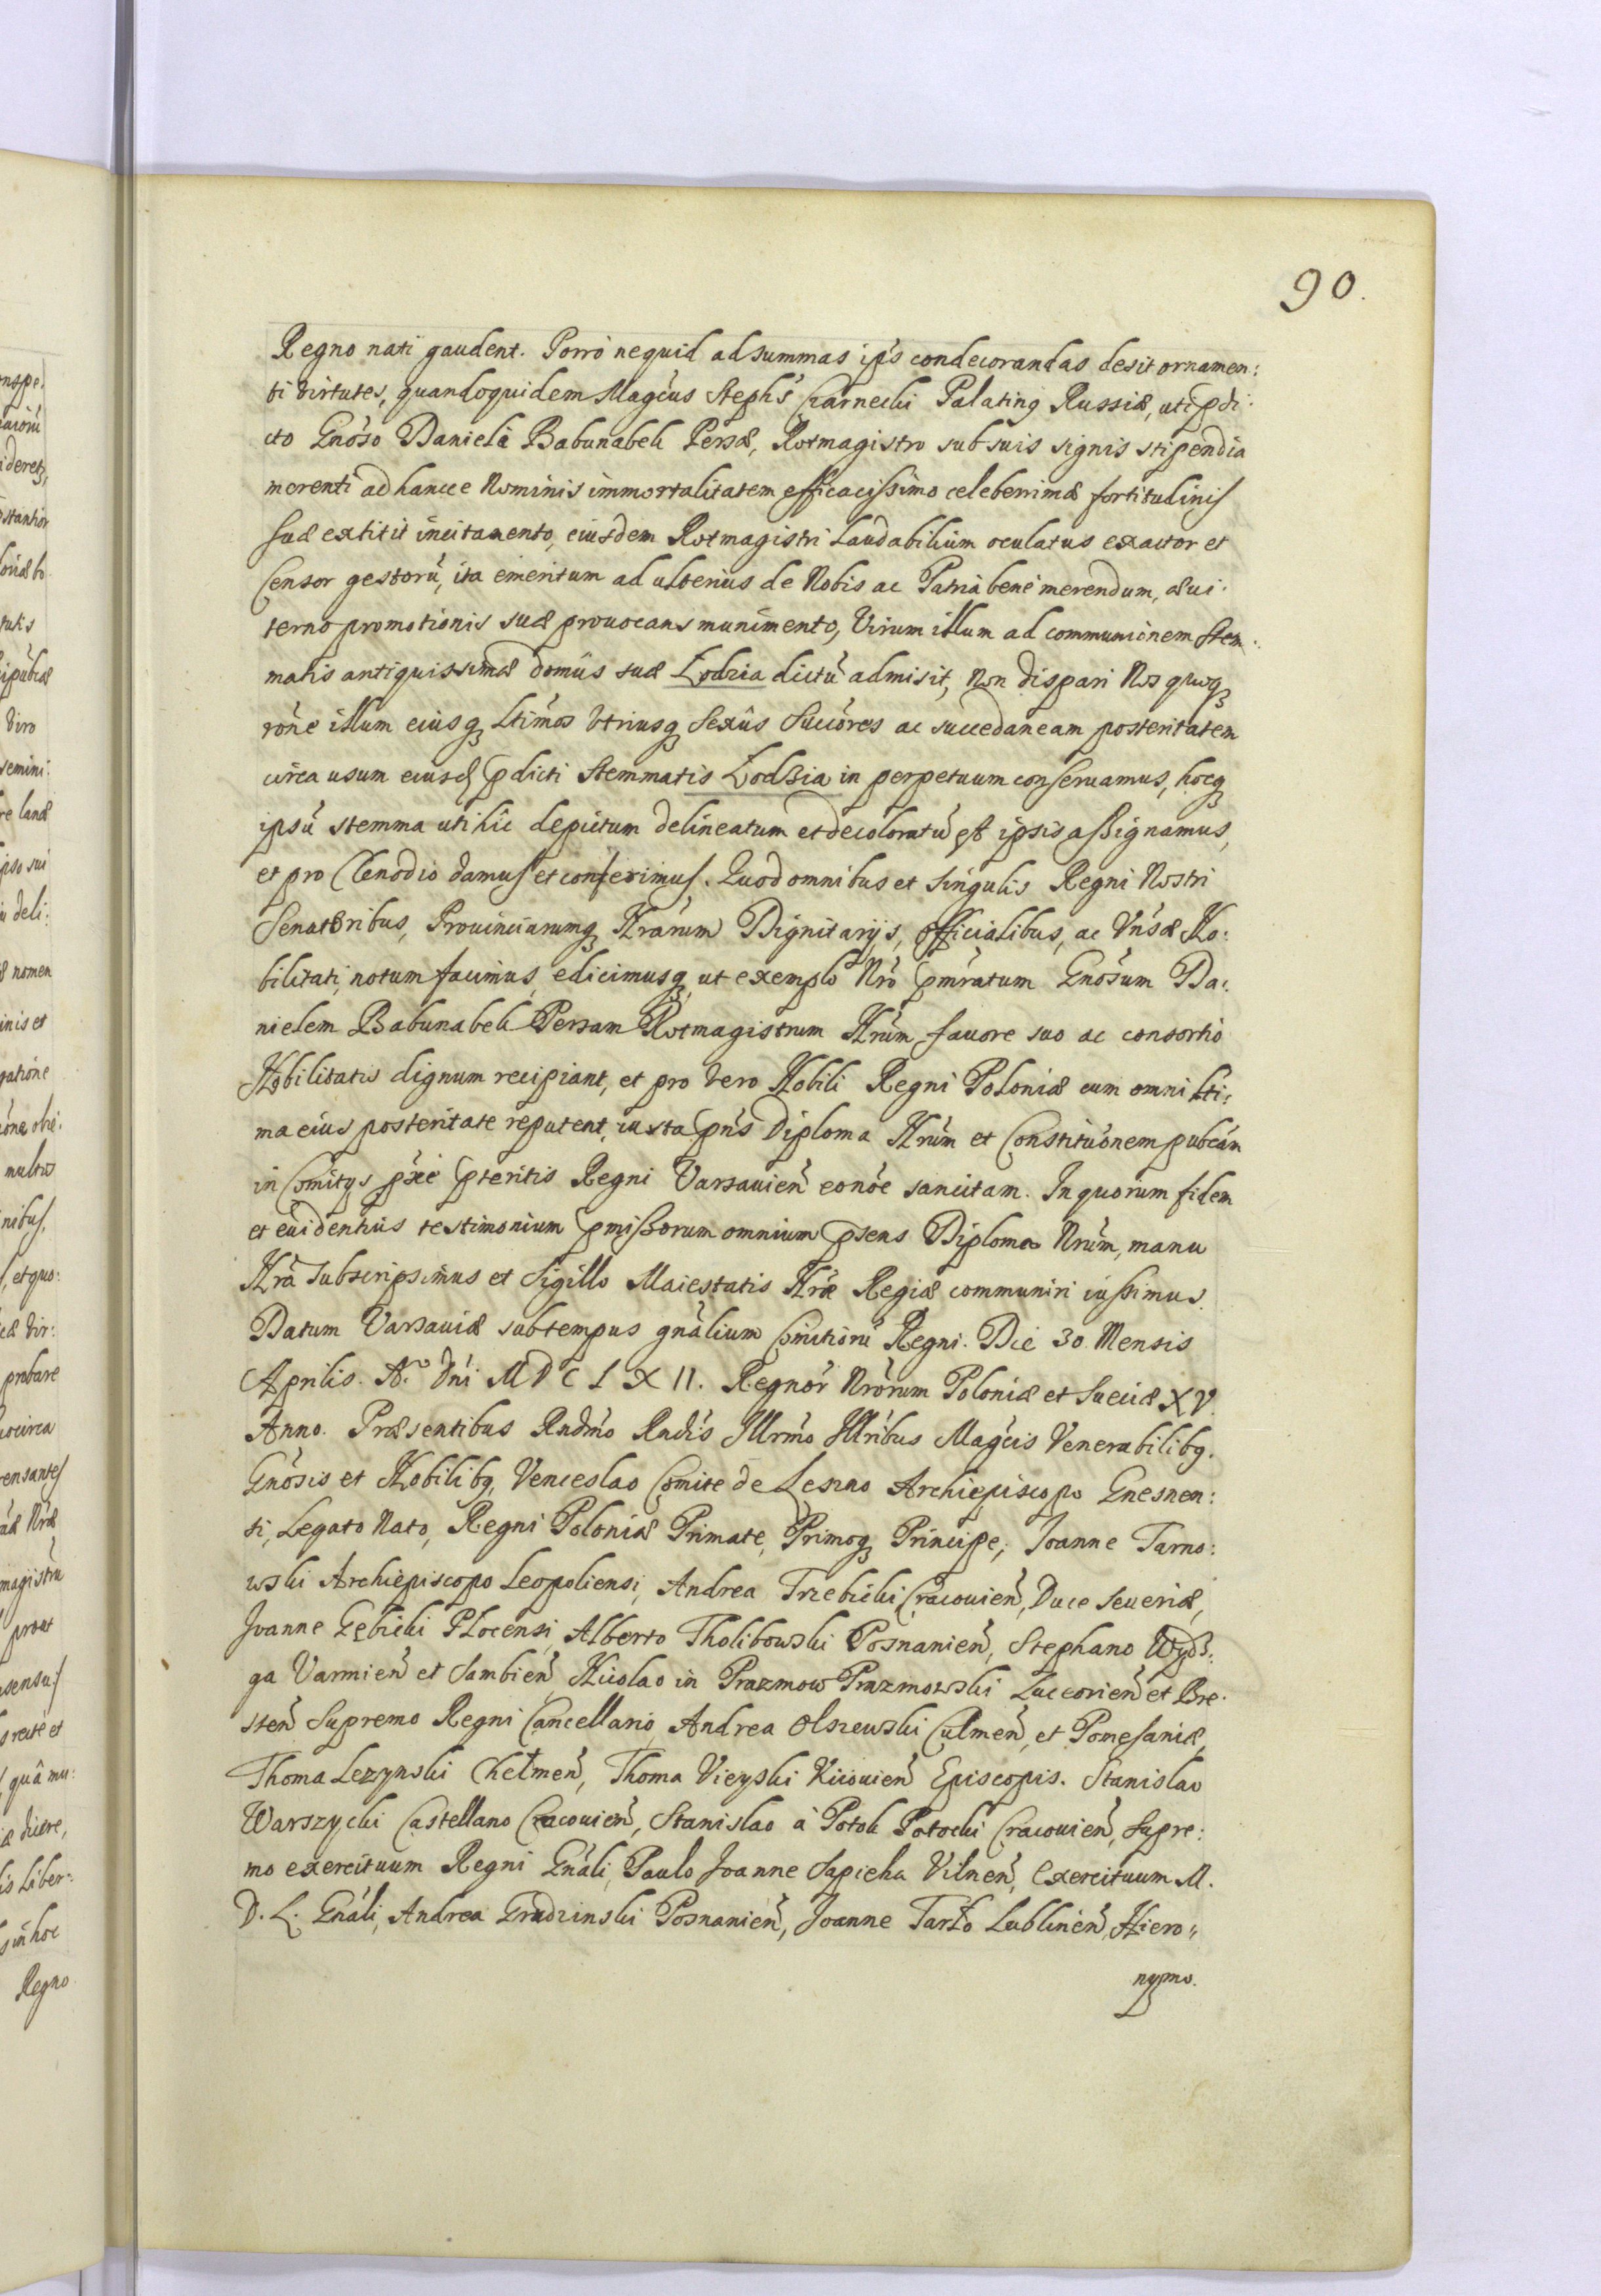 90.
Regno nati gaudent. Porrò nequid ad summas ips̄ condecorandas desit ornamen:
ti virtutes, quandoquidem Magcus Stephs Czarnecki Palatinꝰ Russiæ, uti pdi:
cto Gnoso Danielà Babunabek Persæ, Rotmagistro sub suis signis stipendia
merenti ad hancce Nominis immortalitatem efficacissimo celeberrimæ fortitudinis
suæ extitit incitamento, eiusdem Rotmagistri Laudabilium oculatus exactor et
Censor gestorū, ita emeritum ad ulterius de Nobis ac Patria benè merendum, æui:
terno promotionis suæ prouocans munimento, Virum illum ad communionem Stem:
matis antiquissimæ domûs suæ Łodzia dictū admisit, Non dispari Nos quoqꝫ
rone illum eiusqꝫ Ltimos Vtriusqꝫ Sexûs Succores ac succedaneam posteritatem
circa usum eiusd pdicti Stemmatis Łodzia in perpetuum conseruamus, hocqꝫ
ipsū stemma uti hîc depictum delineatum et decoloratū est ipsis assignamus,
et pro Clenodio damus et conferimus. Quod omnibus et singulis Regni Nostri
Senatoribus, Prouinciarumqꝫ Nrarum Dignitarijs, Officialibus, ac Vnsæ No:
bilitati, notum facimus, edicimusqꝫ, ut exemplo Nro pmratum Gnosum Da:
nielem Babunabek Persam Rotmagistrum Nrum fauore suo ac consortio
Nobilitatis dignum recipiant, et pro vero Nobili Regni Poloniæ cum omni Lti:
ma eius posteritate reputent, iuxta pns Diploma Nrum et Constituonem pubcam
in Comitijs pxie pteritis Regni Varsauien eonoe sancitam. In quorum fidem
et euidentius testimonium pmissorum omnium psens Diploma Nrum, manu
Nra Subscripsimus et Sigillo Maiestatis Nræ Regiæ communiri iussimus.
Datum Varsauiæ sub tempus gnalium Comitiorū Regni. Die 30 Mensis
Aprilis. A.º Dni M D C L X II. Regnor Nrorum Poloniæ et Sueciæ XV
Anno. Præsentibus Rndmo Rndis Illrmo Illribus Magcis Venerabilibꝫ.
Gnosis et Nobilibꝫ, Venceslao Comite de Leszno Archiepiscopo Gnesnen:
si, Legato Nato, Regni Poloniæ Primate, Primoqꝫ Principe; Joanne Tarno:
wski Archiepiscopo Leopoliensi, Andrea Trzebicki Cracouien, Duce Seueriæ,
Joanne Gębicki Plocensi, Alberto Tholibowski Posnanien, Stephano Wydz:
ga Varmien et Sambien Nicolao in Prazmow Prazmowski Luceorien et Bre:
sten Supremo Regni Cancellario, Andrea Olszewski Culmen, et Pomesaniæ,
Thoma Lezynski Chełmen, Thoma Vieyski Kiiouien Episcopis. Stanislao
Warszycki Castellano Cracouien, Stanislao à Potok Potocki Cracouien, Supre:
mo exercituum Regni Gnali, Paulo Joanne Sapieha Vilnen, Exercituum M.
D. L. Gnali, Andrea Grudzinski Posnanien, Joanne Tarło Lublinen, Hiero:
nymo.